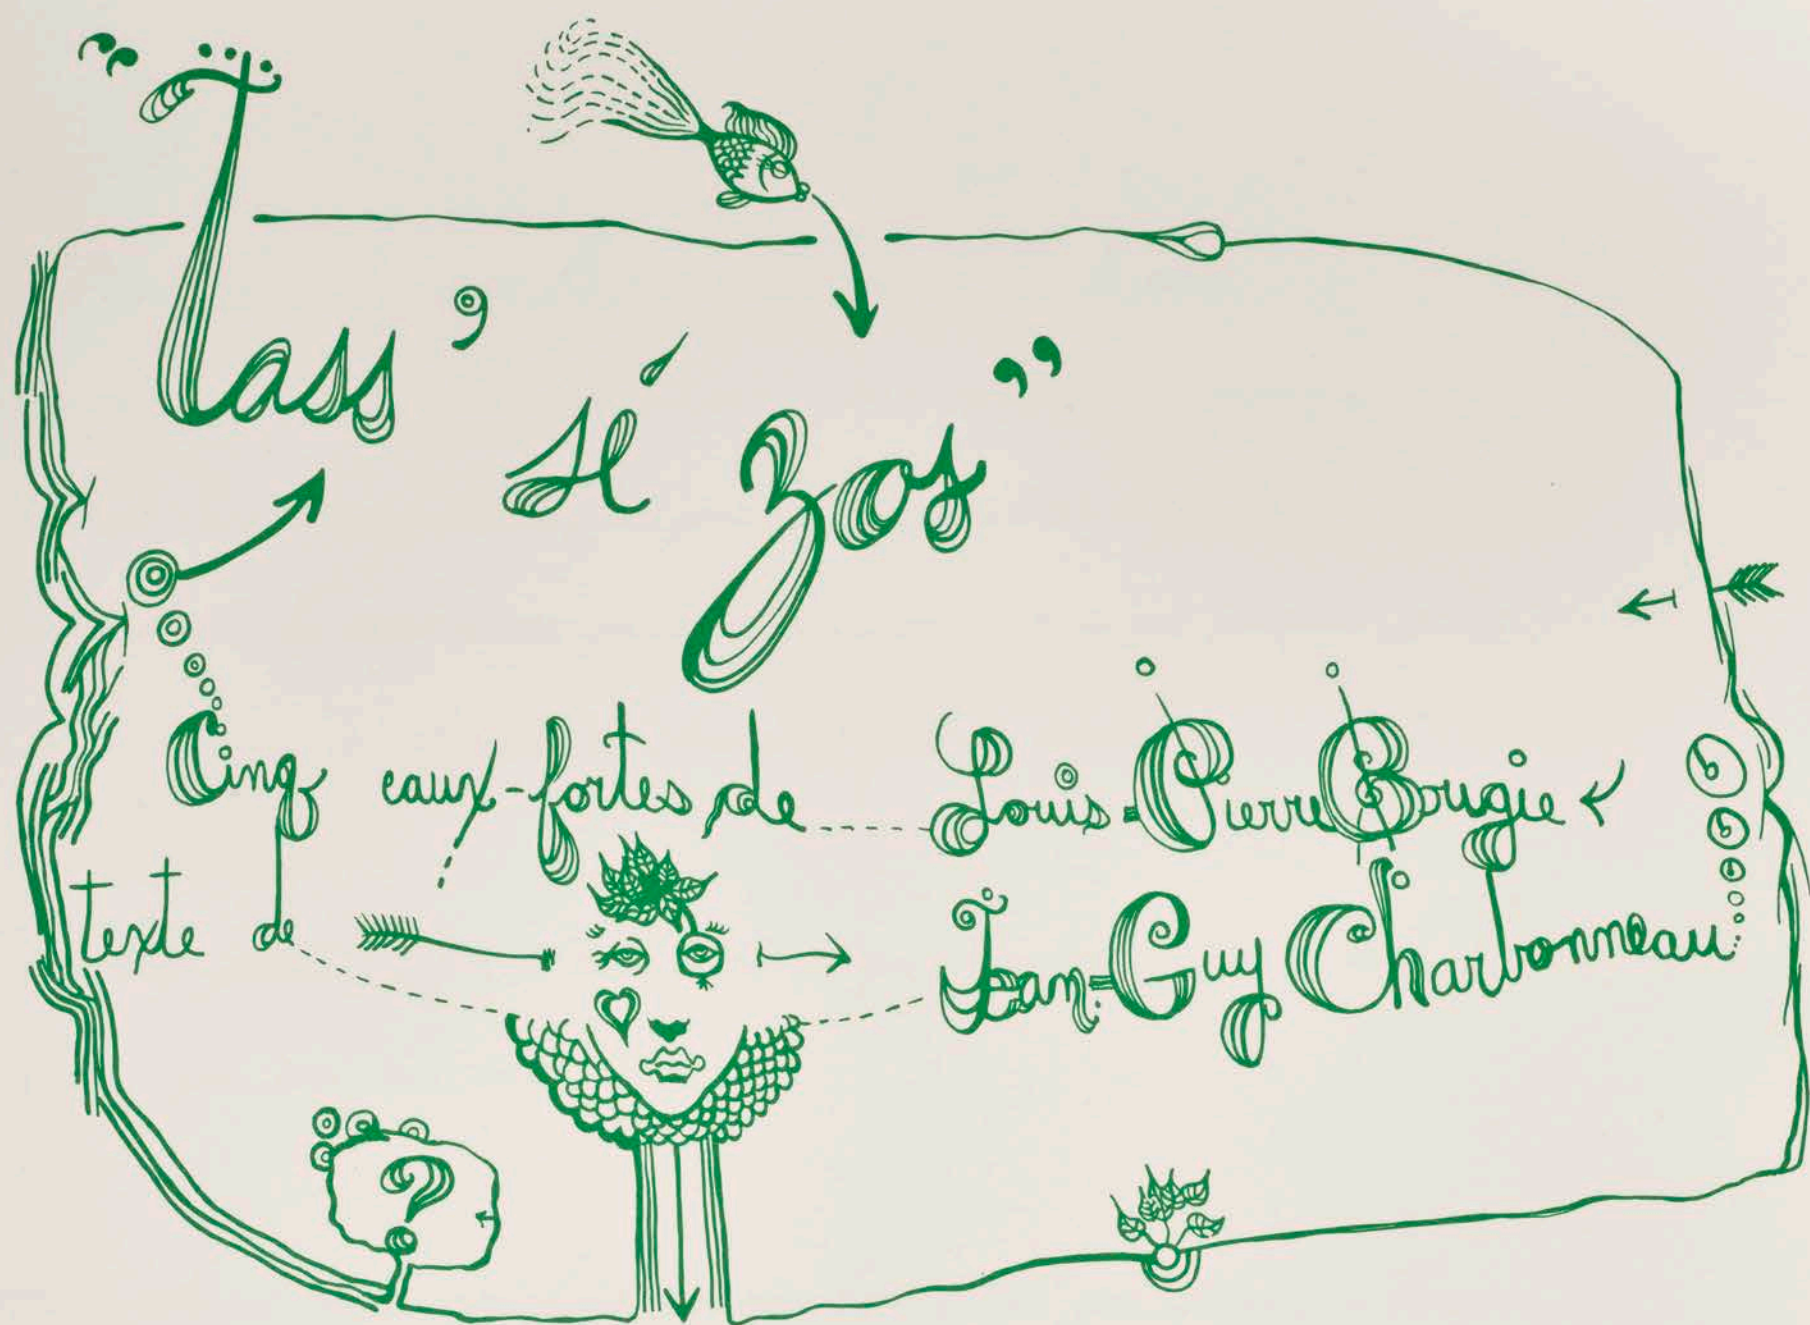 “Tass’ sé zos”
Cinq eaux-fortes de Louis-Pierre Bougie
texte de Jean-Guy Charbonneau
?